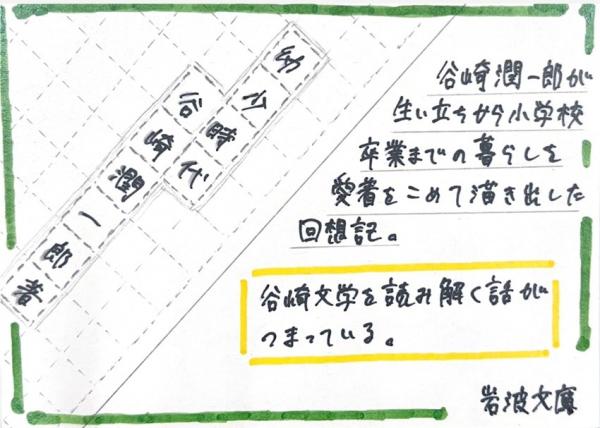 幼少時代
谷崎潤一郎著
谷崎潤一郎が
生い立ちから小学校
卒業までの暮らしを
愛着をこめて描き出した
回想記。
谷崎文学を読み解く話が
つまっている。
岩波文庫